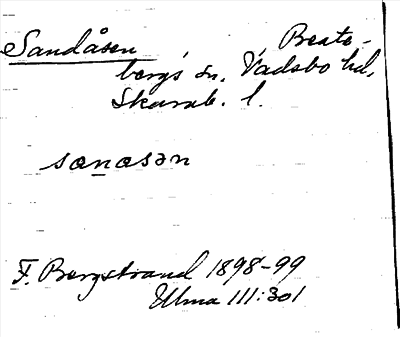 Sandåsen Beate-
bergs sn. Vadsbo hd.
Skarab. l.
sanåsən
F. Bergstrand 1898-99
Ulma 111:301